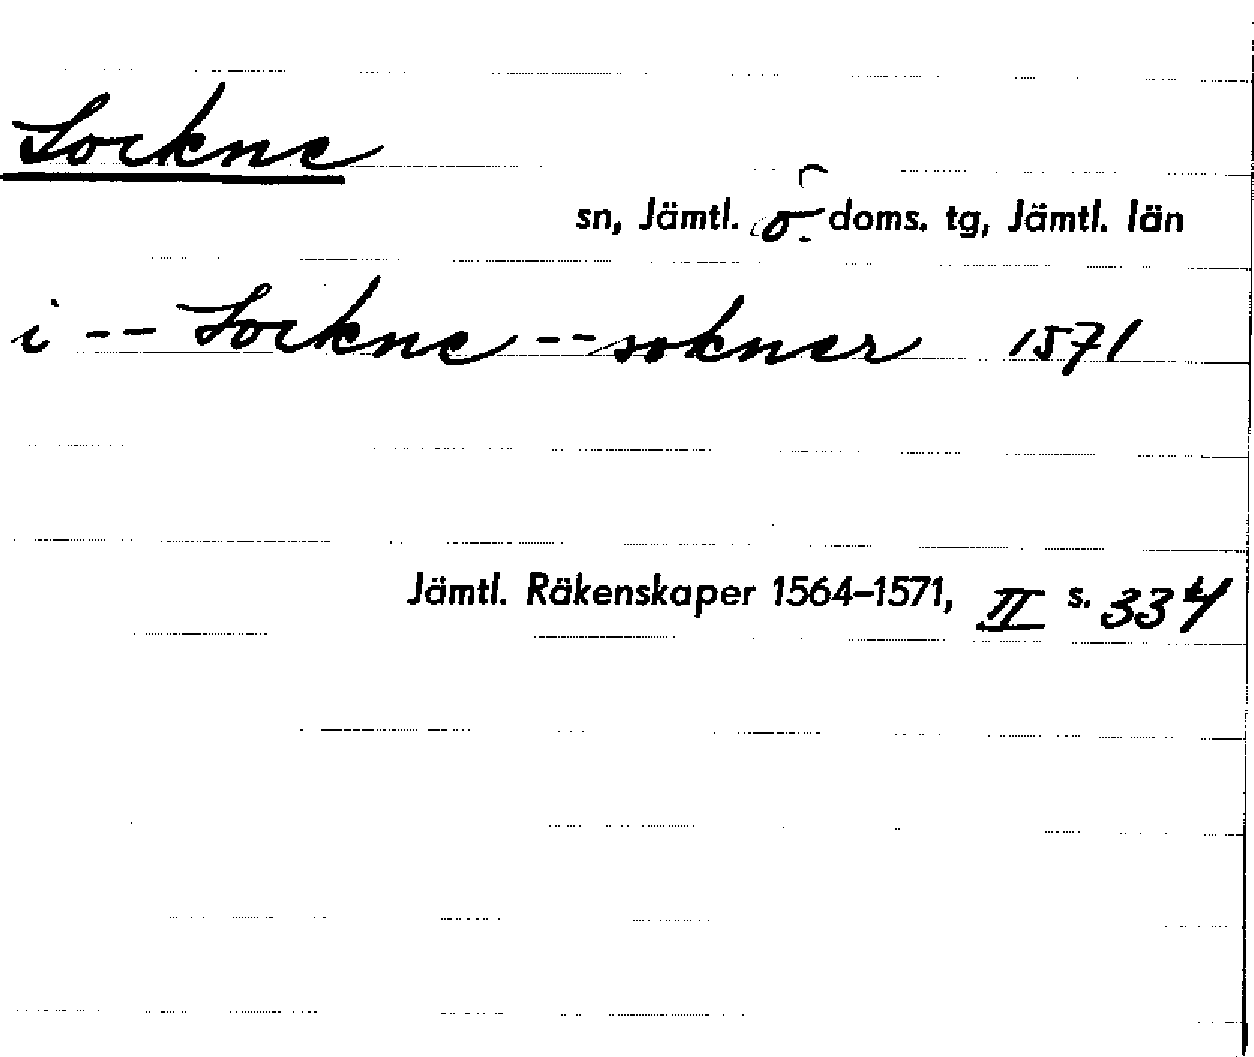 Lockne
sn, Jämtl. ö. doms. tg, Jämtl. län
i -- Lockne -- sokner 1571
Jämtl. Räkenskaper 1564–1571, II s. 334